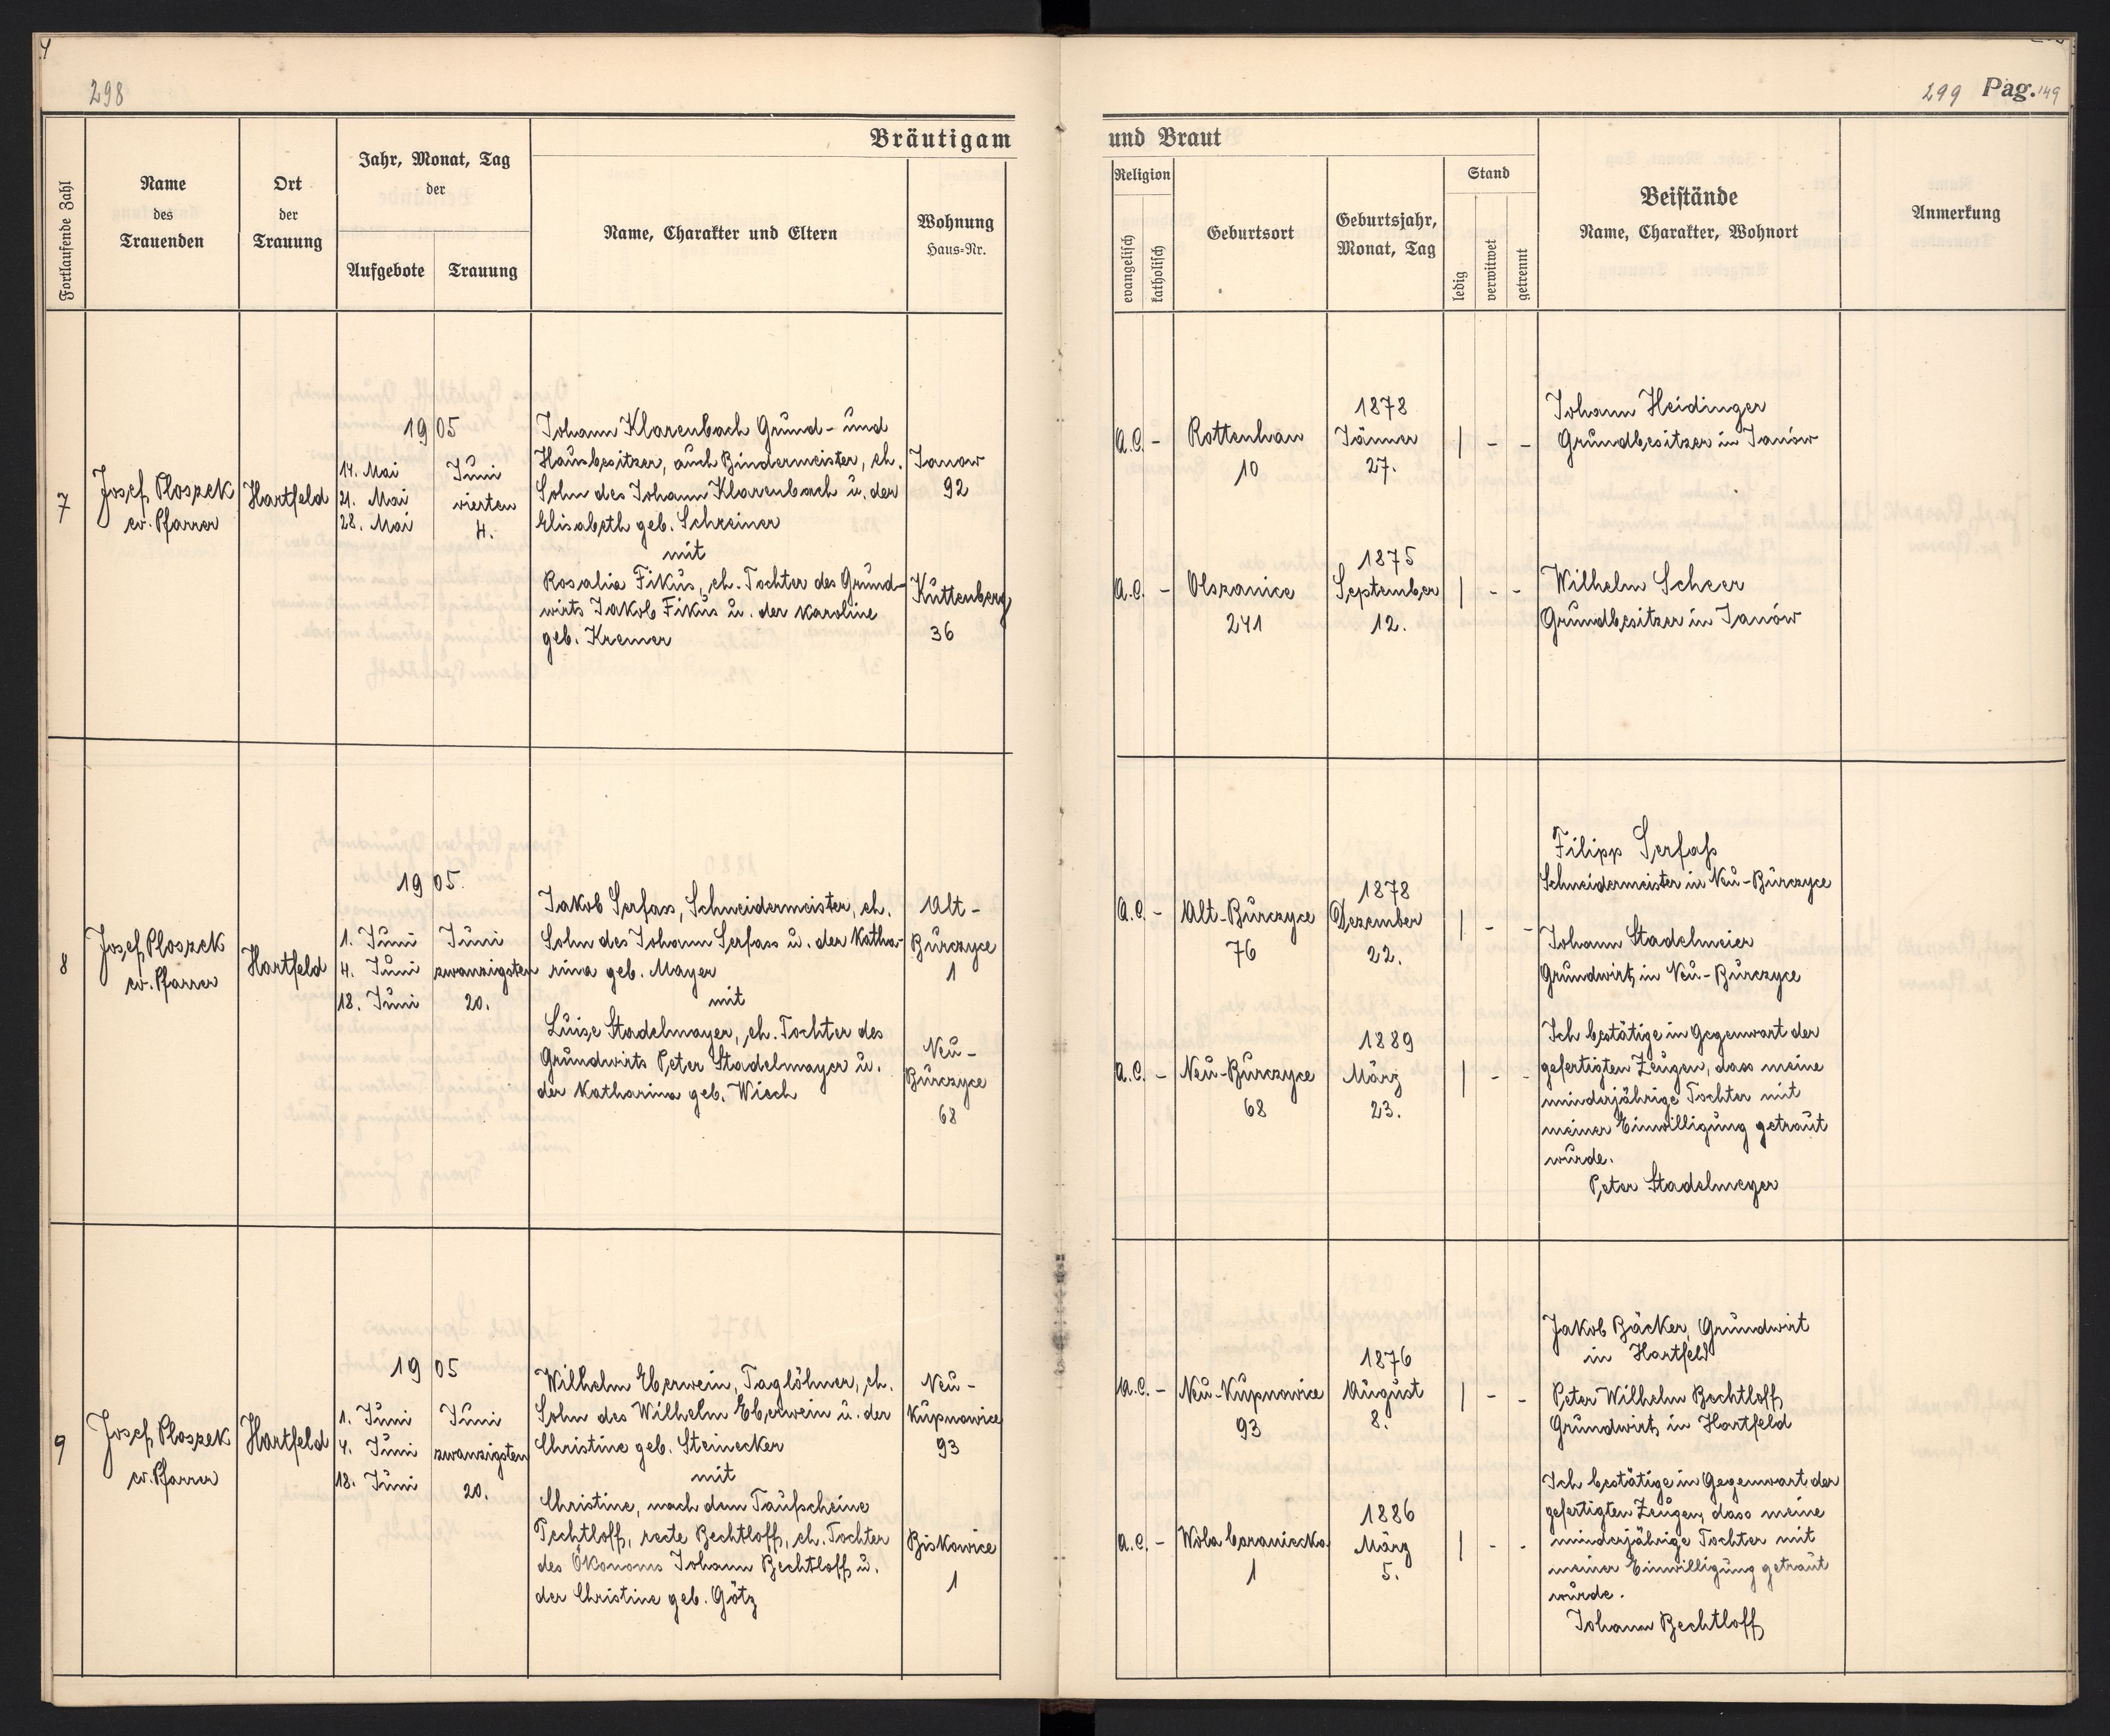 298
299 Pag. 149
Bräutigam
und Braut
Fortlaufende Zahl
Name
des
Trauenden
Ort
der
Trauung
Jahr, Monat, Tag
der
Aufgebote
Trauung
Name, Charakter und Eltern
Wohnung
Haus-Nr.
Religion
evangelisch
katholisch
Geburtsort
Geburtsjahr,
Monat, Tag
Stand
ledig
verwitwet
getrennt
Beistände
Name, Charakter, Wohnort
Anmerkung
7
Josef Ploszek
ev. Pfarrer
Hartfeld
1905
14. Mai
21. Mai
28. Mai
Juni
vierten
4.
Johann Klarenbach Grund- und
Hausbesitzer, auch Bindermeister, eh.
Sohn des Johann Klarenbach u. der
Elisabeth geb. Schreiner
mit
Rosalia Fikus, eh. Tochter des Grund-
wirts Jakob Fikus u. der Karoline
geb. Kremer
Janow
92
Kuttenberg
36
A.C. -
Rottenhan
10
1878
Jänner
27.
| - -
Johann Heidinger
Grundbesitzer in Janów
A.C. -
Olszanice
241
1875
September
12.
| - -
Wilhelm Scheer
Grundbesitzer in Janów
8
Josef Ploszek
ev. Pfarrer
Hartfeld
1905.
1. Juni
4. Juni
18. Juni
Juni
zwanzigsten
20.
Jakob Serfass, Schneidermeister, eh.
Sohn des Johann Serfass u. der Katha-
rina geb. Mayer
mit
Luise Stadelmayer, eh. Tochter des
Grundwirts Peter Stadelmayer u.
der Katharina geb. Wiech
Alt-
Burczyce
1
Neu-
Burczyce
68
A.C. -
Alt-Burczyce
76
1878
Dezember
22.
| - -
Filipp Serfaß
Schneidermeister in Neu-Burczyce
Johann Stadelmeier
Grundwirt in Neu-Burczyce
A.C. -
Neu-Burczyce
68
1889
März
23.
| - -
Ich bestätige in Gegenwart der
gefertigten Zeugen, dass meine
minderjährige Tochter mit
meiner Einwilligung getraut
wurde.
Peter Stadelmeyer
9
Josef Ploszek
ev. Pfarrer
Hartfeld
1905
1. Juni
4. Juni
18. Juni
Juni
zwanzigsten
20.
Wilhelm Eberwein, Taglöhner, eh.
Sohn des Wilhelm Eberwein u. der
Christine geb. Steinecker
mit
Christine, nach dem Taufscheine
Pechtloff, recte Bechtloff, eh. Tochter
des Ökonoms Johann Bechtloff u.
der Christine geb. Götz
Neu-
Kupnowice
93
Biskowice
1
A.C. -
Neu-Kupnowice
93
1876
August
8.
| - -
Jakob Bäcker, Grundwirt
in Hartfeld
Peter Wilhelm Bechtloff
Grundwirt in Hartfeld
A.C. -
Wola baraniecka
1
1886
März
5.
| - -
Ich bestätige in Gegenwart der
gefertigten Zeugen, dass meine
minderjährige Tochter mit
meiner Einwilligung getraut
wurde.
Johann Bechtloff